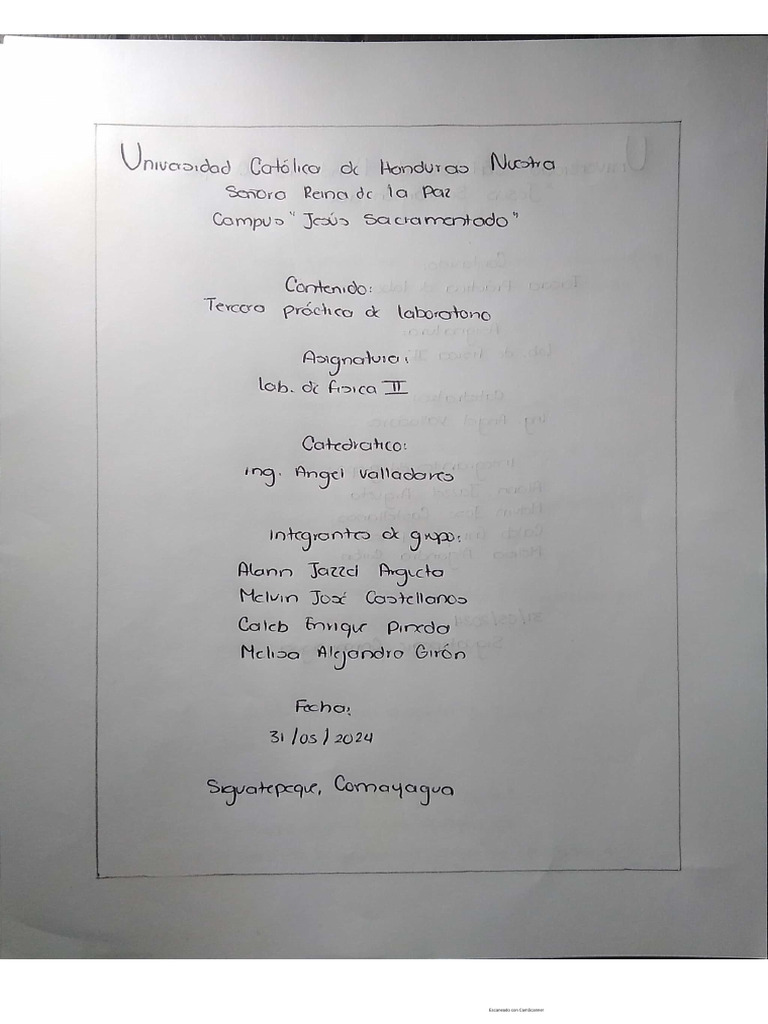 Universidad Católica de Honduras Nuestra
Señora Reina de la Paz
Campus "Jesús Sacramentado"
Contenido:
Tercera práctica de laboratorio
Asignatura:
lab. de física II
Catedratico:
ing. Angel valladares
Integrantes de grupo:
Alann Jazzel Argueta
Melvin José Castellanos
Caleb Enrique Pineda
Melisa Alejandra Girón
Fecha:
31/05/2024
Siguatepeque, Comayagua
Escaneado con CamScanner